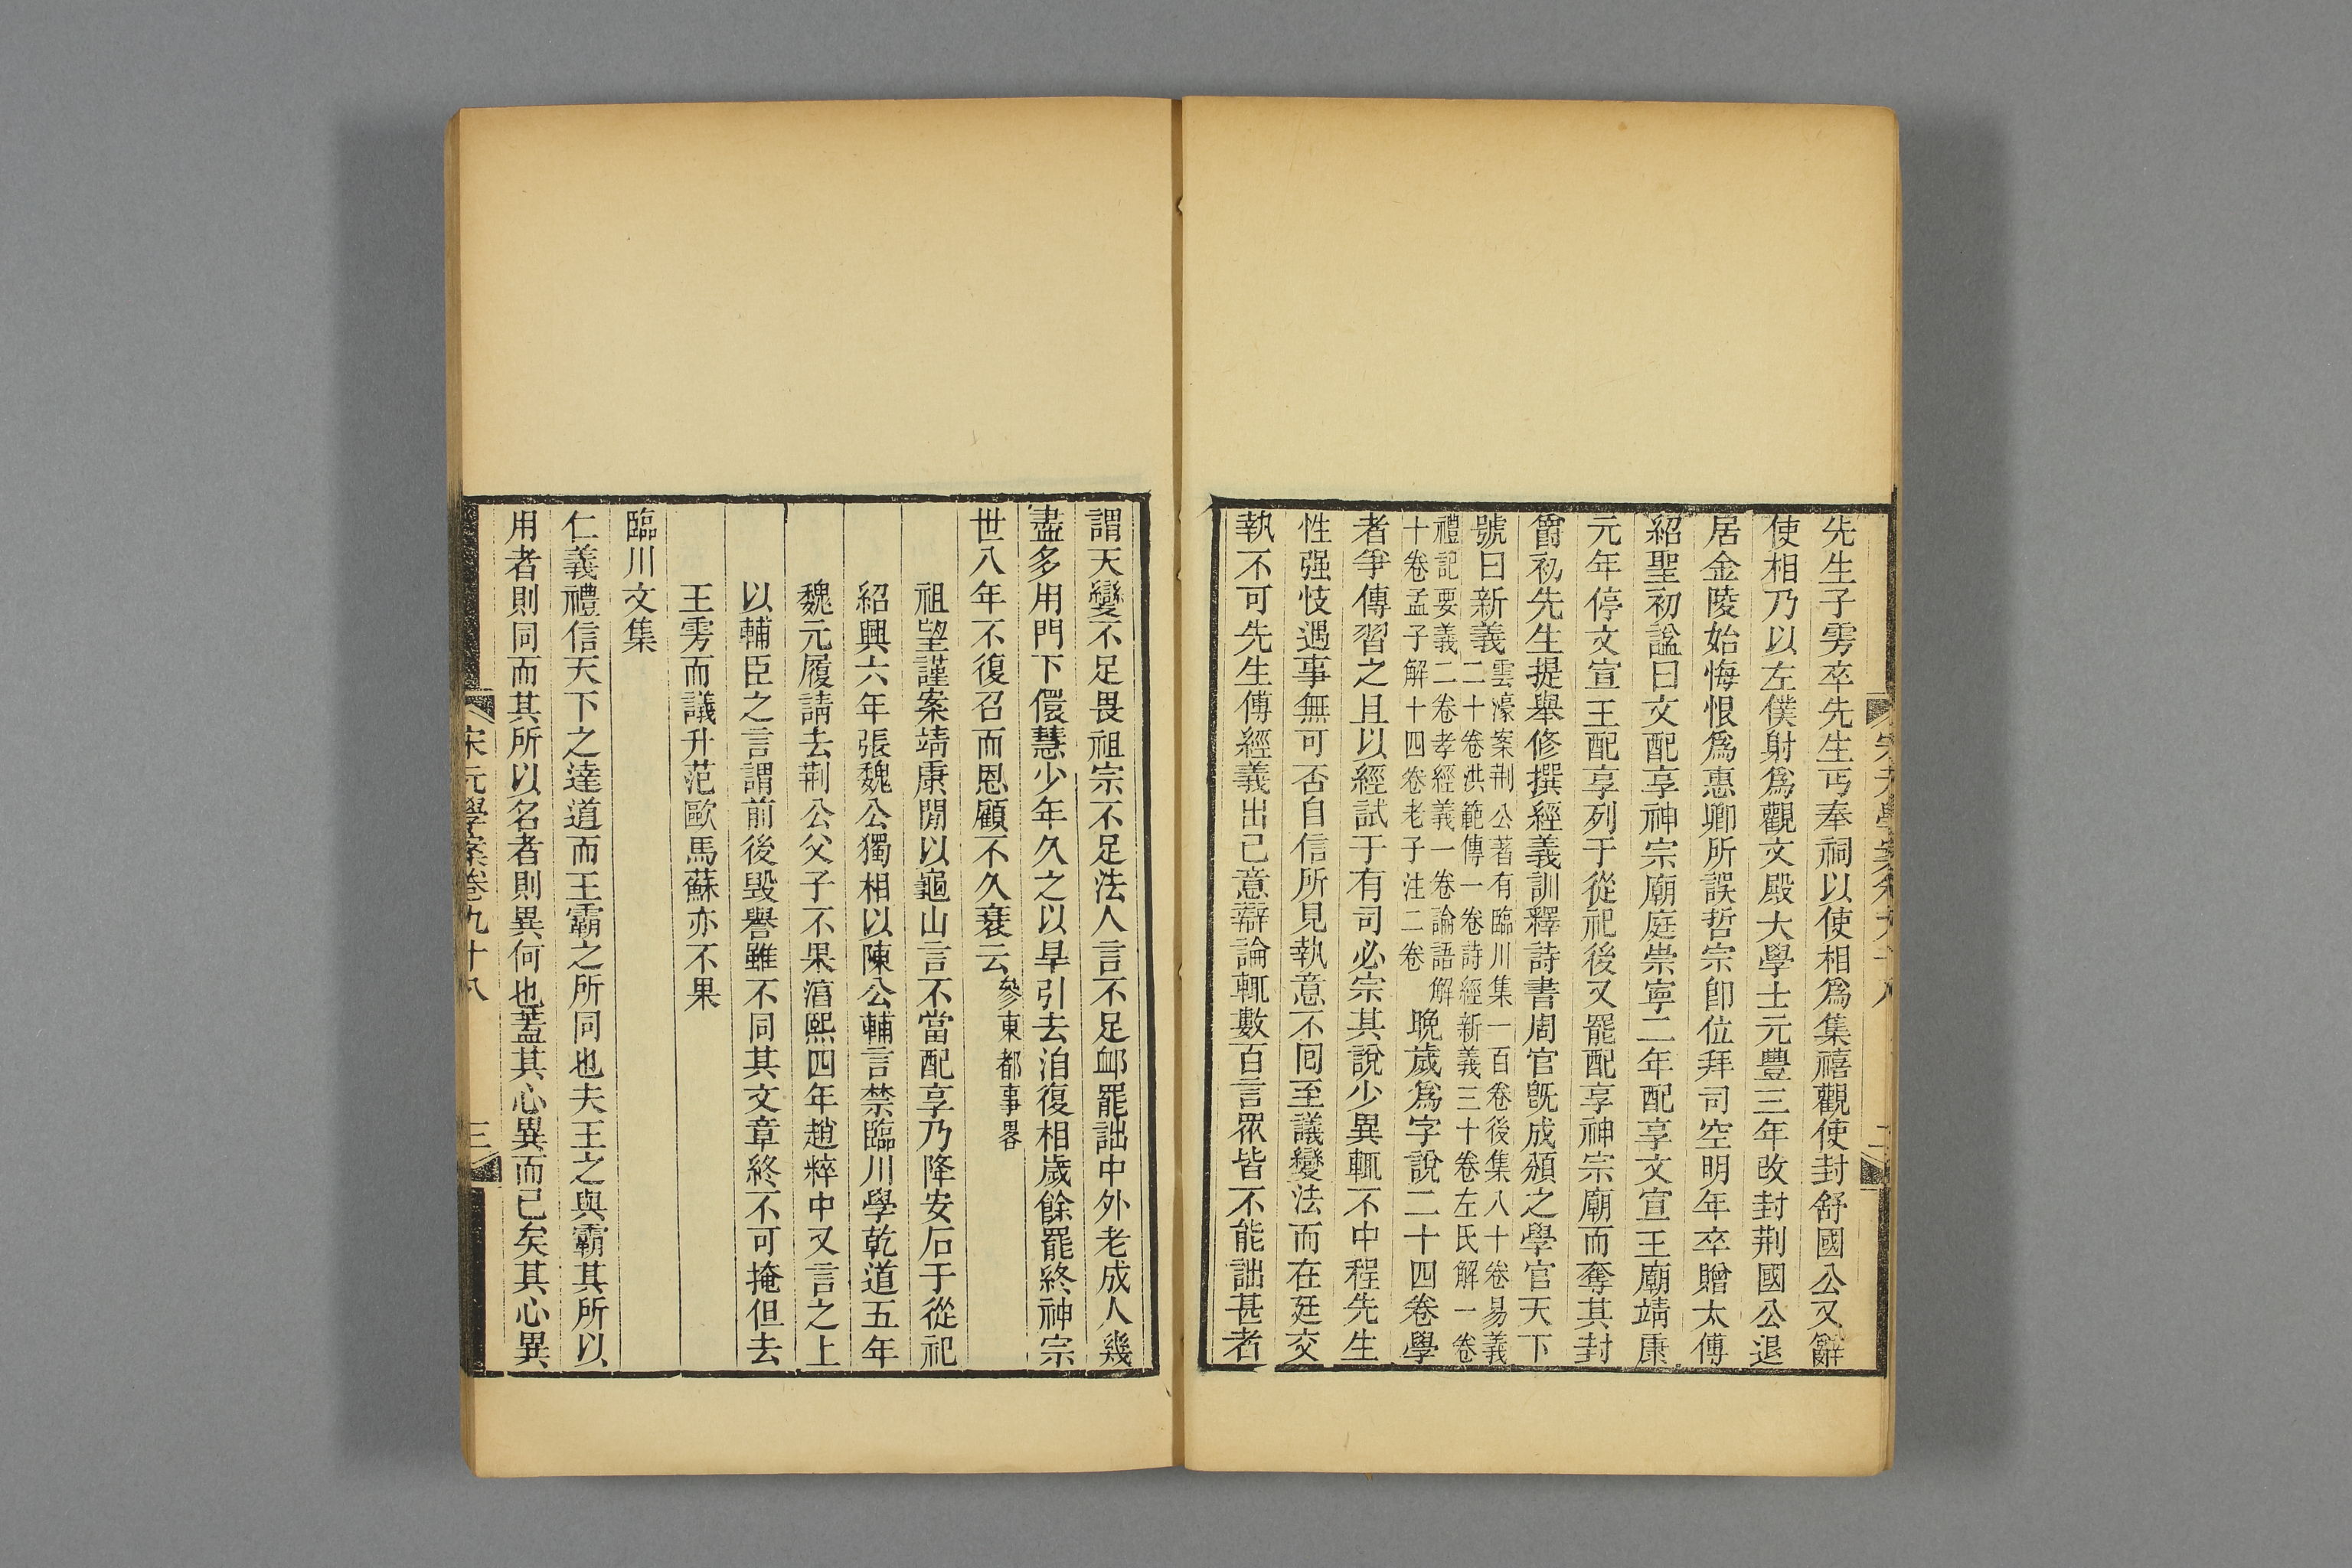 先生子雱卒先生丐奉祠以使相爲集禧觀使封舒國公又辭
使相乃以左僕射爲觀文殿大學士元豐三年改封荆國公退
居金陵始悔恨爲惠卿所誤哲宗卽位拜司空明年卒贈太傅
紹聖初諡曰文配享神宗廟庭崇寧二年配享文宣王廟靖康
元年停文宣王配享列于從祀後又罷配享神宗廟而奪其封
爵初先生提舉修撰經義訓釋詩書周官旣成頒之學官天下
號曰新義
雲濠案荆公著有臨川集一百卷後集八十卷易義
二十卷洪範傳一卷詩經新義三十卷左氏解一卷
禮記要義二卷孝經義一卷論語解
十卷孟子解十四卷老子注二卷
晚歲爲字說二十四卷學
者爭傳習之且以經試于有司必宗其說少異輒不中程先生
性强忮遇事無可否自信所見執意不囘至議變法而在廷交
執不可先生傅經義出己意辯論輒數百言眾皆不能詘甚者
謂天變不足畏祖宗不足法人言不足䘏罷詘中外老成人幾
盡多用門下儇慧少年久之以旱引去洎復相歲餘罷終神宗
世八年不復召而恩顧不久衰云
參東都事畧
祖望謹案靖康閒以龜山言不當配享乃降安石于從祀
紹興六年張魏公獨相以陳公輔言禁臨川學乾道五年
魏元履請去荆公父子不果湻熙四年趙粹中又言之上
以輔臣之言謂前後毀譽雖不同其文章終不可掩但去
王雱而議升范歐馬蘇亦不果
臨川文集
仁義禮信天下之達道而王霸之所同也夫王之與霸其所以
用者則同而其所以名者則異何也葢其心異而已矣其心異
宋元學案卷九十八
三